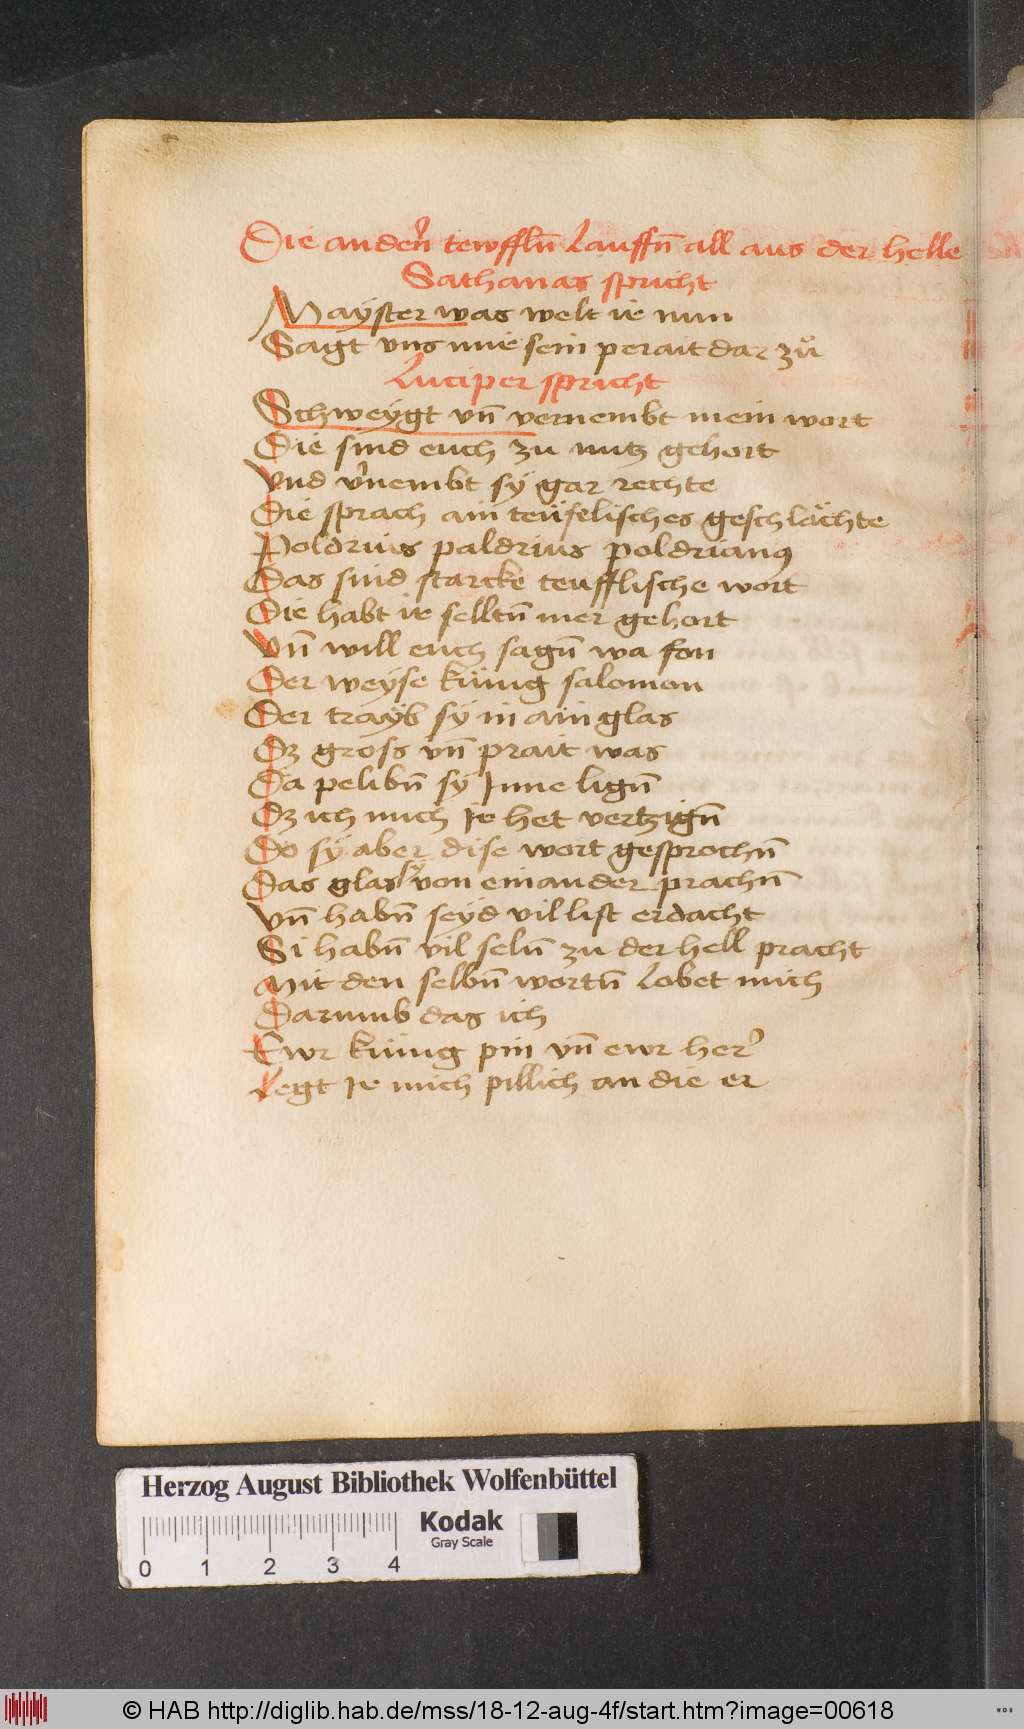 Die andern̄ tewffln̄ Lauffn̄ all aus der helle
Sathanas spricht
Mayster was welt ir nun
Sagt vns mir sein perait dar zů
Luciper spricht
Schweygt vn̄ vernembt mein wort
Die sind euch zu nutz gehort
Vnd v̾nembt sÿ gar rechte
Die sprach ain teüfelisches geschlächte
Poldrius paldrius poldrianꝰ
Das sind starcke teufflische wort
Die habt ir selltn̄ mer gehort
Vn̄ will euch sagn̄ wa fon
Der weyse künig salomon
Der trayb sÿ in ain glas
Dz gross vn̄ prait was
Da pelibn̄ sÿ Inne lign̄
Dz ich mich Ir het vertzign̄
Do sÿ aber dise wort gesprochn̄
Das glas sÿ von einander prachn̄
Vn̄ habn̄ seyd vil list erdacht
Si habn̄ vil seln̄ zu der hell pracht
Mit den selbn̄ wortn̄ Lobet mich
Darumb das ich
Ewr künig pin vn̄ ewr her̾
Legt Ir mich pillich an die er
Herzog August Bibliothek Wolfenbüttel
Kodak
Gray Scale
0 1 2 3 4
© HAB http://diglib.hab.de/mss/18-12-aug-4f/start.htm?image=00618